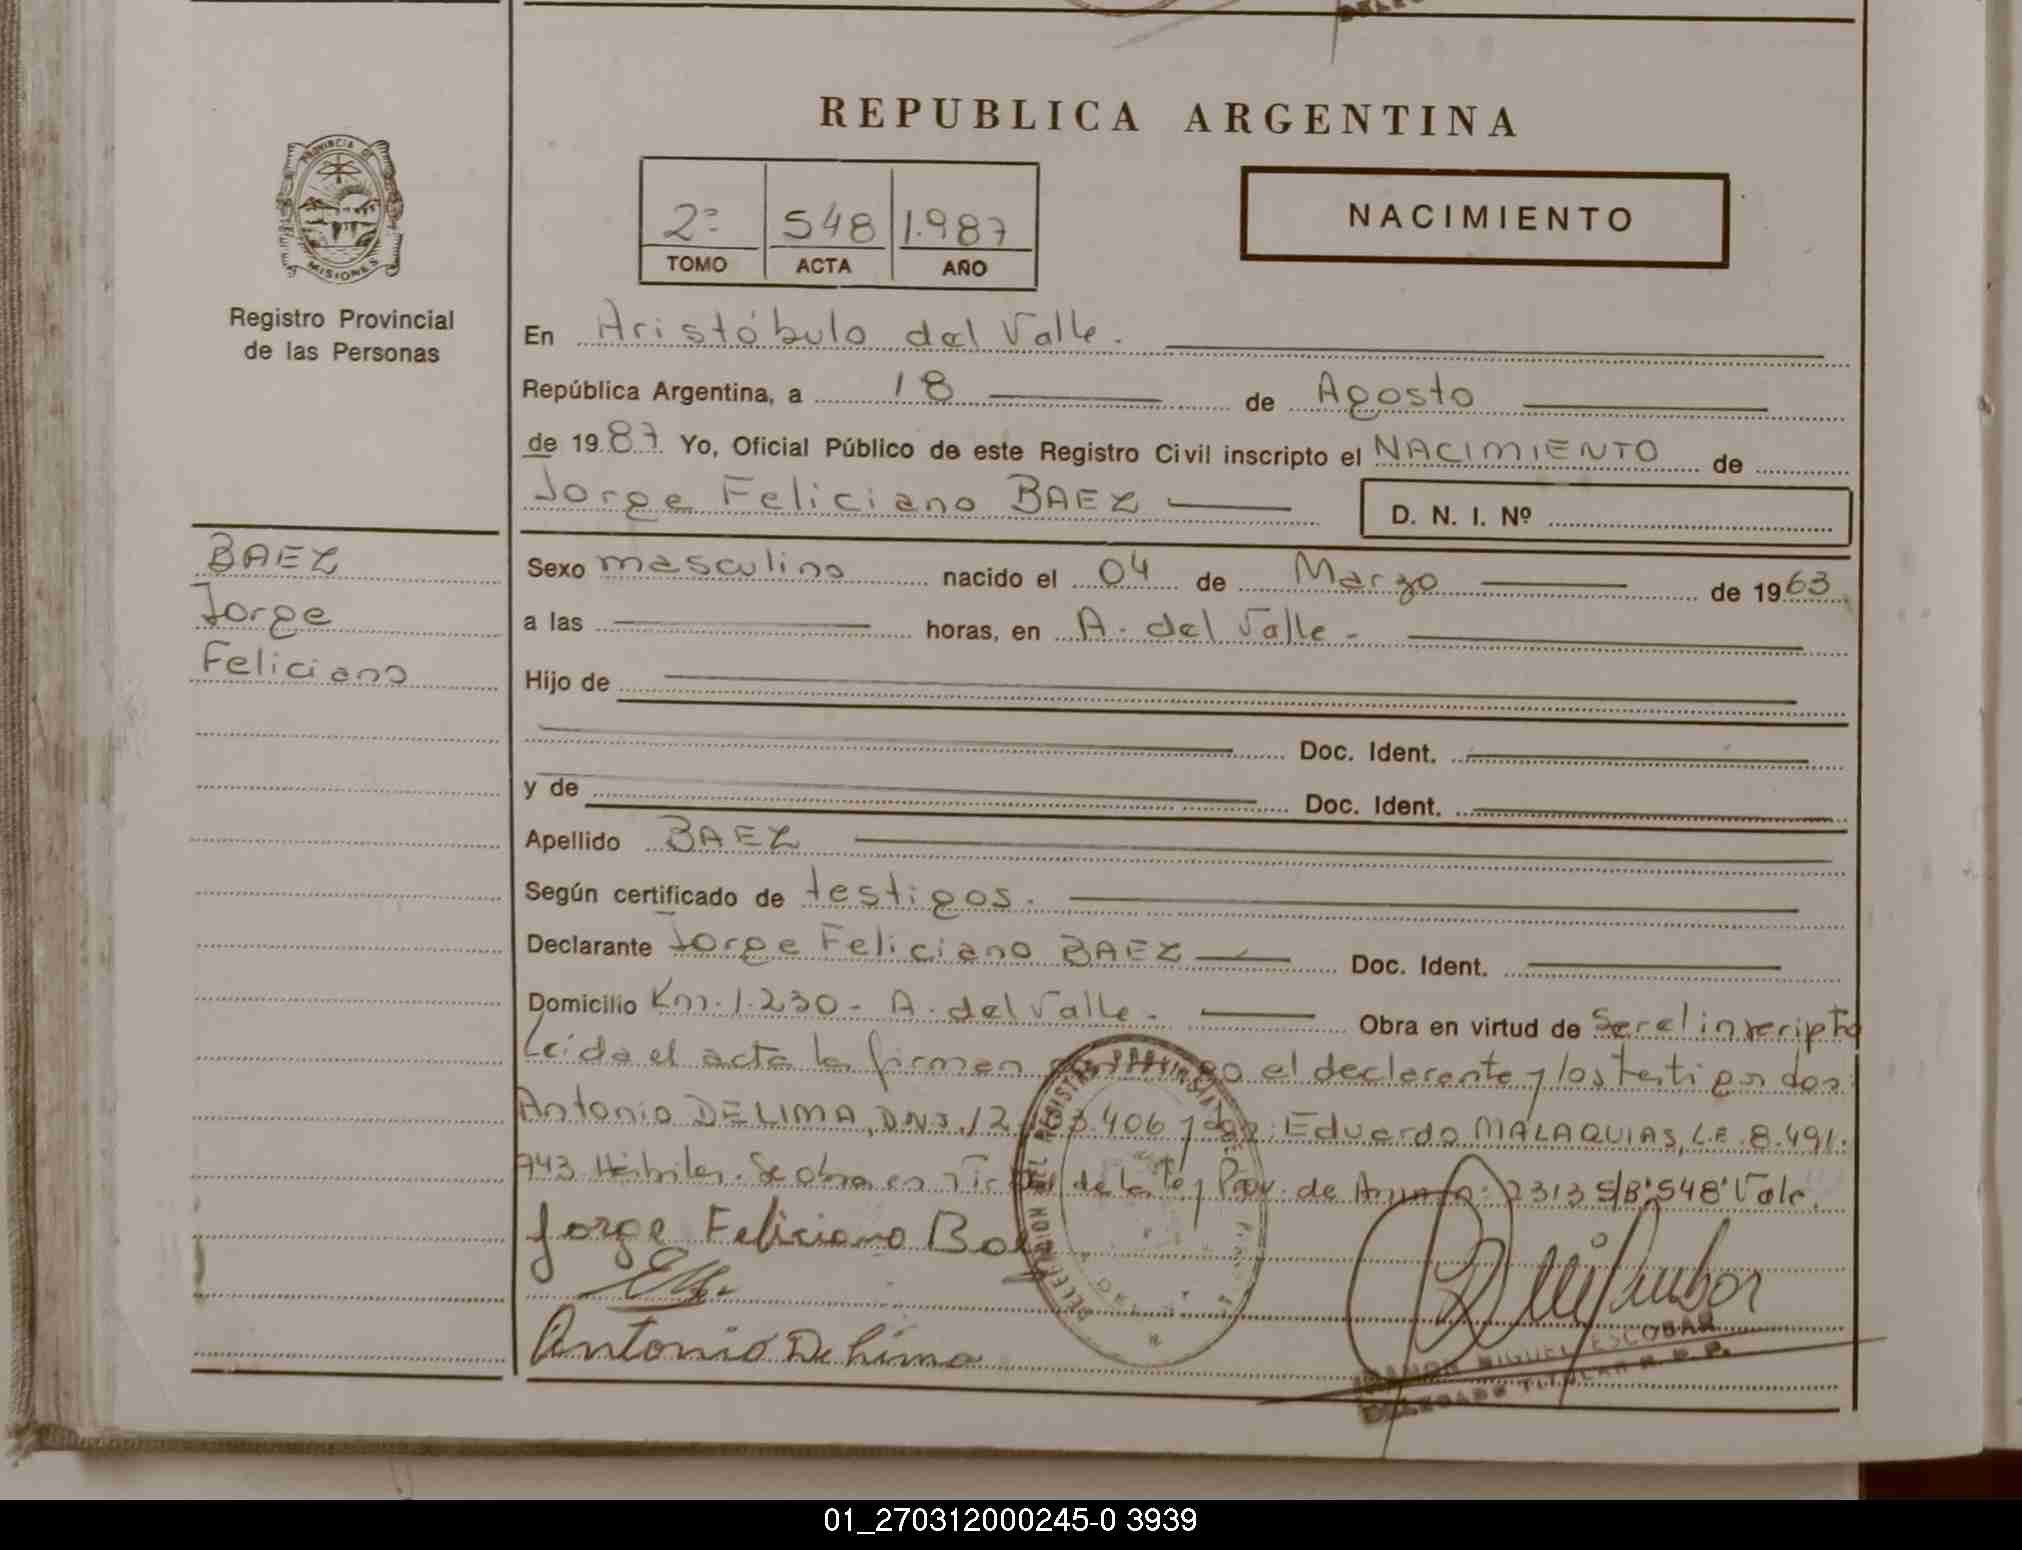 REPUBLICA ARGENTINA
PROVINCIA DE
MISIONES
Registro Provincial
de las Personas
2º 548 1.987
TOMO ACTA AÑO
NACIMIENTO
En Aristóbulo del Valle.
República Argentina, a 18 de Agosto
de 1987 Yo, Oficial Público de este Registro Civil inscripto el NACIMIENTO de
Jorge Feliciano BAEZ D. N. I. Nº
BAEZ
Jorge
Feliciano
Sexo masculino nacido el 04 de Marzo de 1963
a las horas, en A. del Valle -
Hijo de
Doc. Ident.
y de Doc. Ident.
Apellido BAEZ
Según certificado de testigos.
Declarante Jorge Feliciano BAEZ Doc. Ident.
Domicilio Km. 1.230 - A. del Valle - Obra en virtud de Ser el inscripto
Leida el acta la firman el declarante y los testigos don:
Antonio DE LIMA, DNI. 12 3.406 y don: Eduardo MALAQUIAS, L.E. 8.491.
943 Hábiles. Se obra en de la Ley Prov. de 2313 S/B "548" Vale.
Jorge Feliciano Baez
Antonio De Lima
DELEGACION DEL REGISTRO PROVINCIAL DE
RAMON MIGUEL ESCOBAR
DELEGADO TITULAR R. P. P.
01_270312000245-0 3939